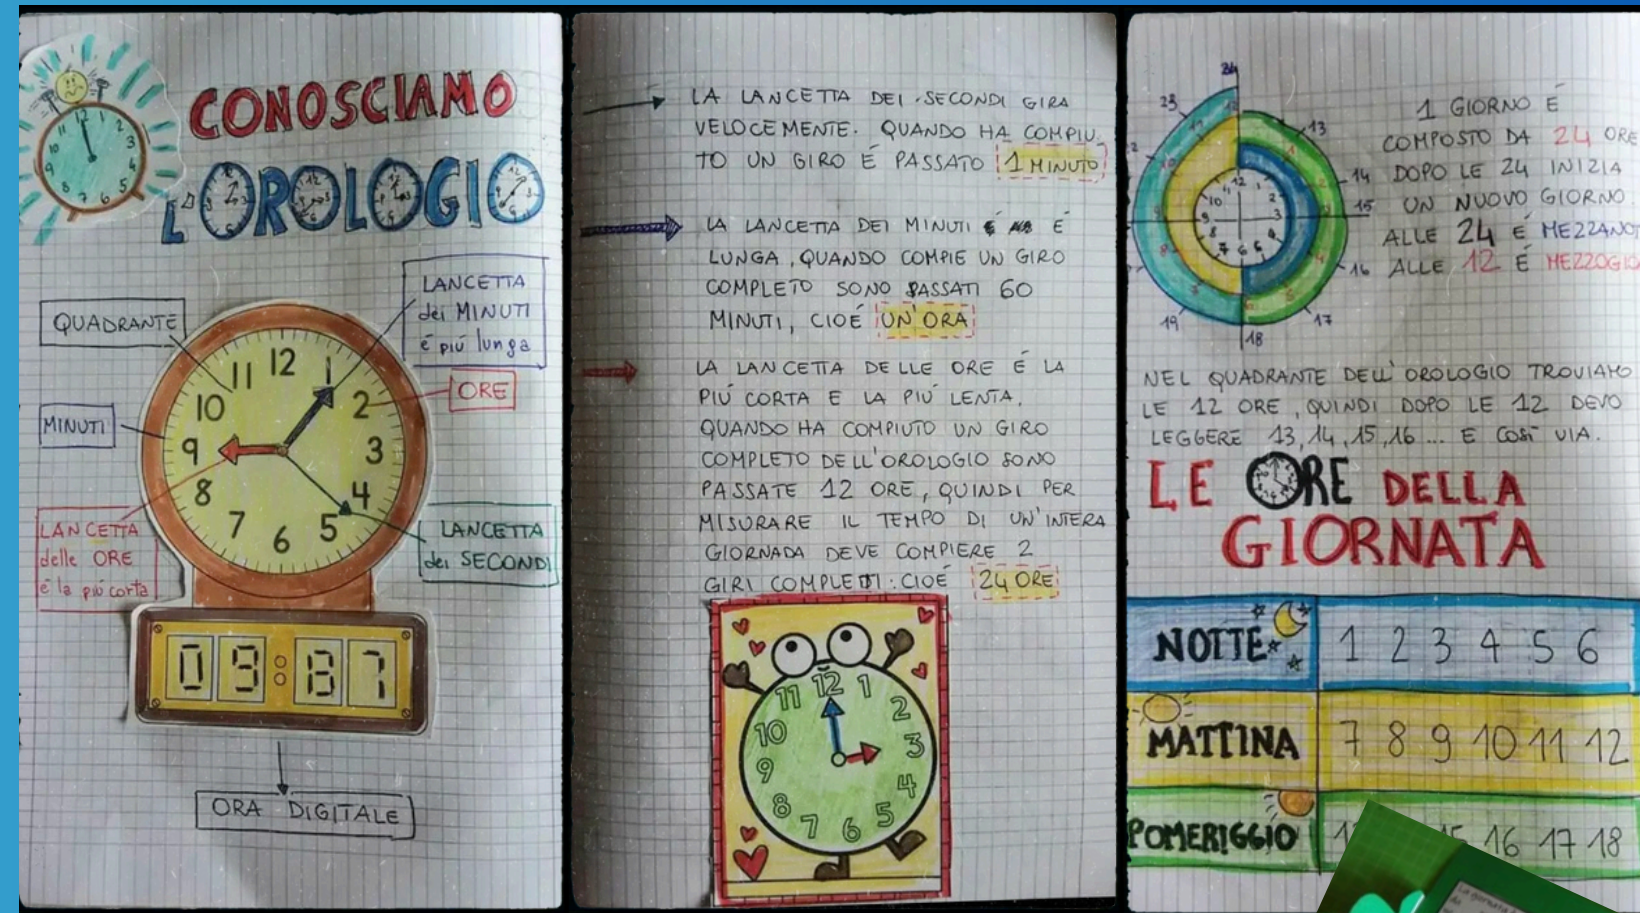 CONOSCIAMO
L'OROLOGIO
QUADRANTE
LANCETTA
dei MINUTI
é piú lunga
ORE
MINUTI
LANCETTA
delle ORE
é la piú corta
LANCETTA
dei SECONDI
12
1
2
3
4
5
6
7
8
9
10
11
ORA DIGITALE
LA LANCETTA DEI SECONDI GIRA
VELOCEMENTE. QUANDO HA COMPIU
TO UN GIRO É PASSATO 1 MINUTO
LA LANCETTA DEI MINUTI É
LUNGA, QUANDO COMPIE UN GIRO
COMPLETO SONO PASSATI 60
MINUTI, CIOÉ UN'ORA
LA LANCETTA DELLE ORE É LA
PIÚ CORTA E LA PIÚ LENTA.
QUANDO HA COMPIUTO UN GIRO
COMPLETO DELL'OROLOGIO SONO
PASSATE 12 ORE, QUINDI PER
MISURARE IL TEMPO DI UN'INTERA
GIORNADA DEVE COMPIERE 2
GIRI COMPLETI: CIOÉ 24 ORE
12
1
2
3
4
5
6
7
8
9
10
11
24
23
13
14
15
16
17
18
19
1 GIORNO É
COMPOSTO DA 24 ORE
DOPO LE 24 INIZIA
UN NUOVO GIORNO
ALLE 24 É MEZZANOT
ALLE 12 É MEZZOGIO
NEL QUADRANTE DELL'OROLOGIO TROVIAMO
LE 12 ORE, QUINDI DOPO LE 12 DEVO
LEGGERE 13, 14, 15, 16 ... E COSÍ VIA.
LE ORE DELLA
GIORNATA
NOTTE 1 2 3 4 5 6
MATTINA 7 8 9 10 11 12
POMERIGGIO 16 17 18